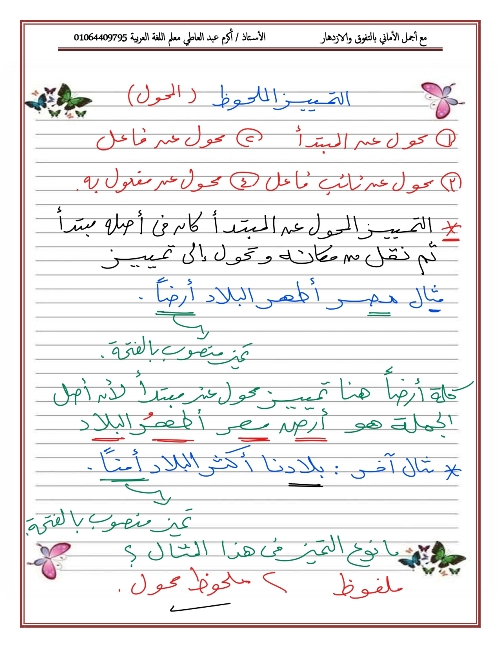 مع أجمل الأماني بالتفوق والازدهار الأستاذ / أكرم عبد العاطي معلم اللغة العربية 01064409795
التمييز الملحوظ (المحول)
١ محول عن المبتدأ ٢ محول عن فاعل
٣ محول عن نائب فاعل ٤ محول عن مفعول به.
* التمييز المحول عن المبتدأ كان في أصله مبتدأ
ثم نقل من مكانه وتحول إلى تمييز
مثال مصر أطهر البلاد أرضاً.
تميز منصوب بالفتحة.
كلمة أرضاً هنا تمييز محول عن مبتدأ لأن أصل
الجملة هو أرض مصر أطهر البلاد
* مثال آخر : بلادنا أكثر البلاد أمناً.
تميز منصوب بالفتحة.
ما نوع التميز في هذا المثال ؟
ملفوظ ٢ ملحوظ محول.